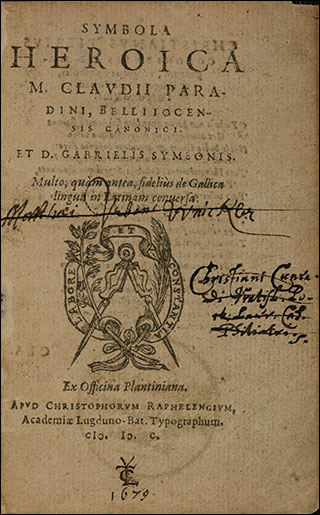 SYMBOLA
HEROICA
M. CLAVDII PARA-
DINI, BELLIIOCEN-
SIS CANONICI.
ET D. GABRIELIS SYMEONIS.
Multo, quàm antea, fidelius de Gallica
lingua in Latinam conuersa.
LABORE ET CONSTANTIA
Christiani
Ex Officina Plantiniana.
APVD CHRISTOPHORVM RAPHELENGIVM,
Academiæ Lugduno-Bat. Typographum.
CIↃ. IↃ. C.
1679.